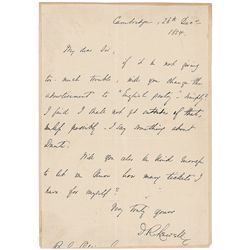 Cambridge, 26th Decr
1854.
My dear Sir,
If it is not going
to much trouble, will you change the
advertisement to "English poetry" simply?
I find I shall not get outside of that,
unless possibly I say something about
Dante.
Will you also be kind enough
to let me know how many tickets I
have for myself?
Very truly yours
J. R. Lowell